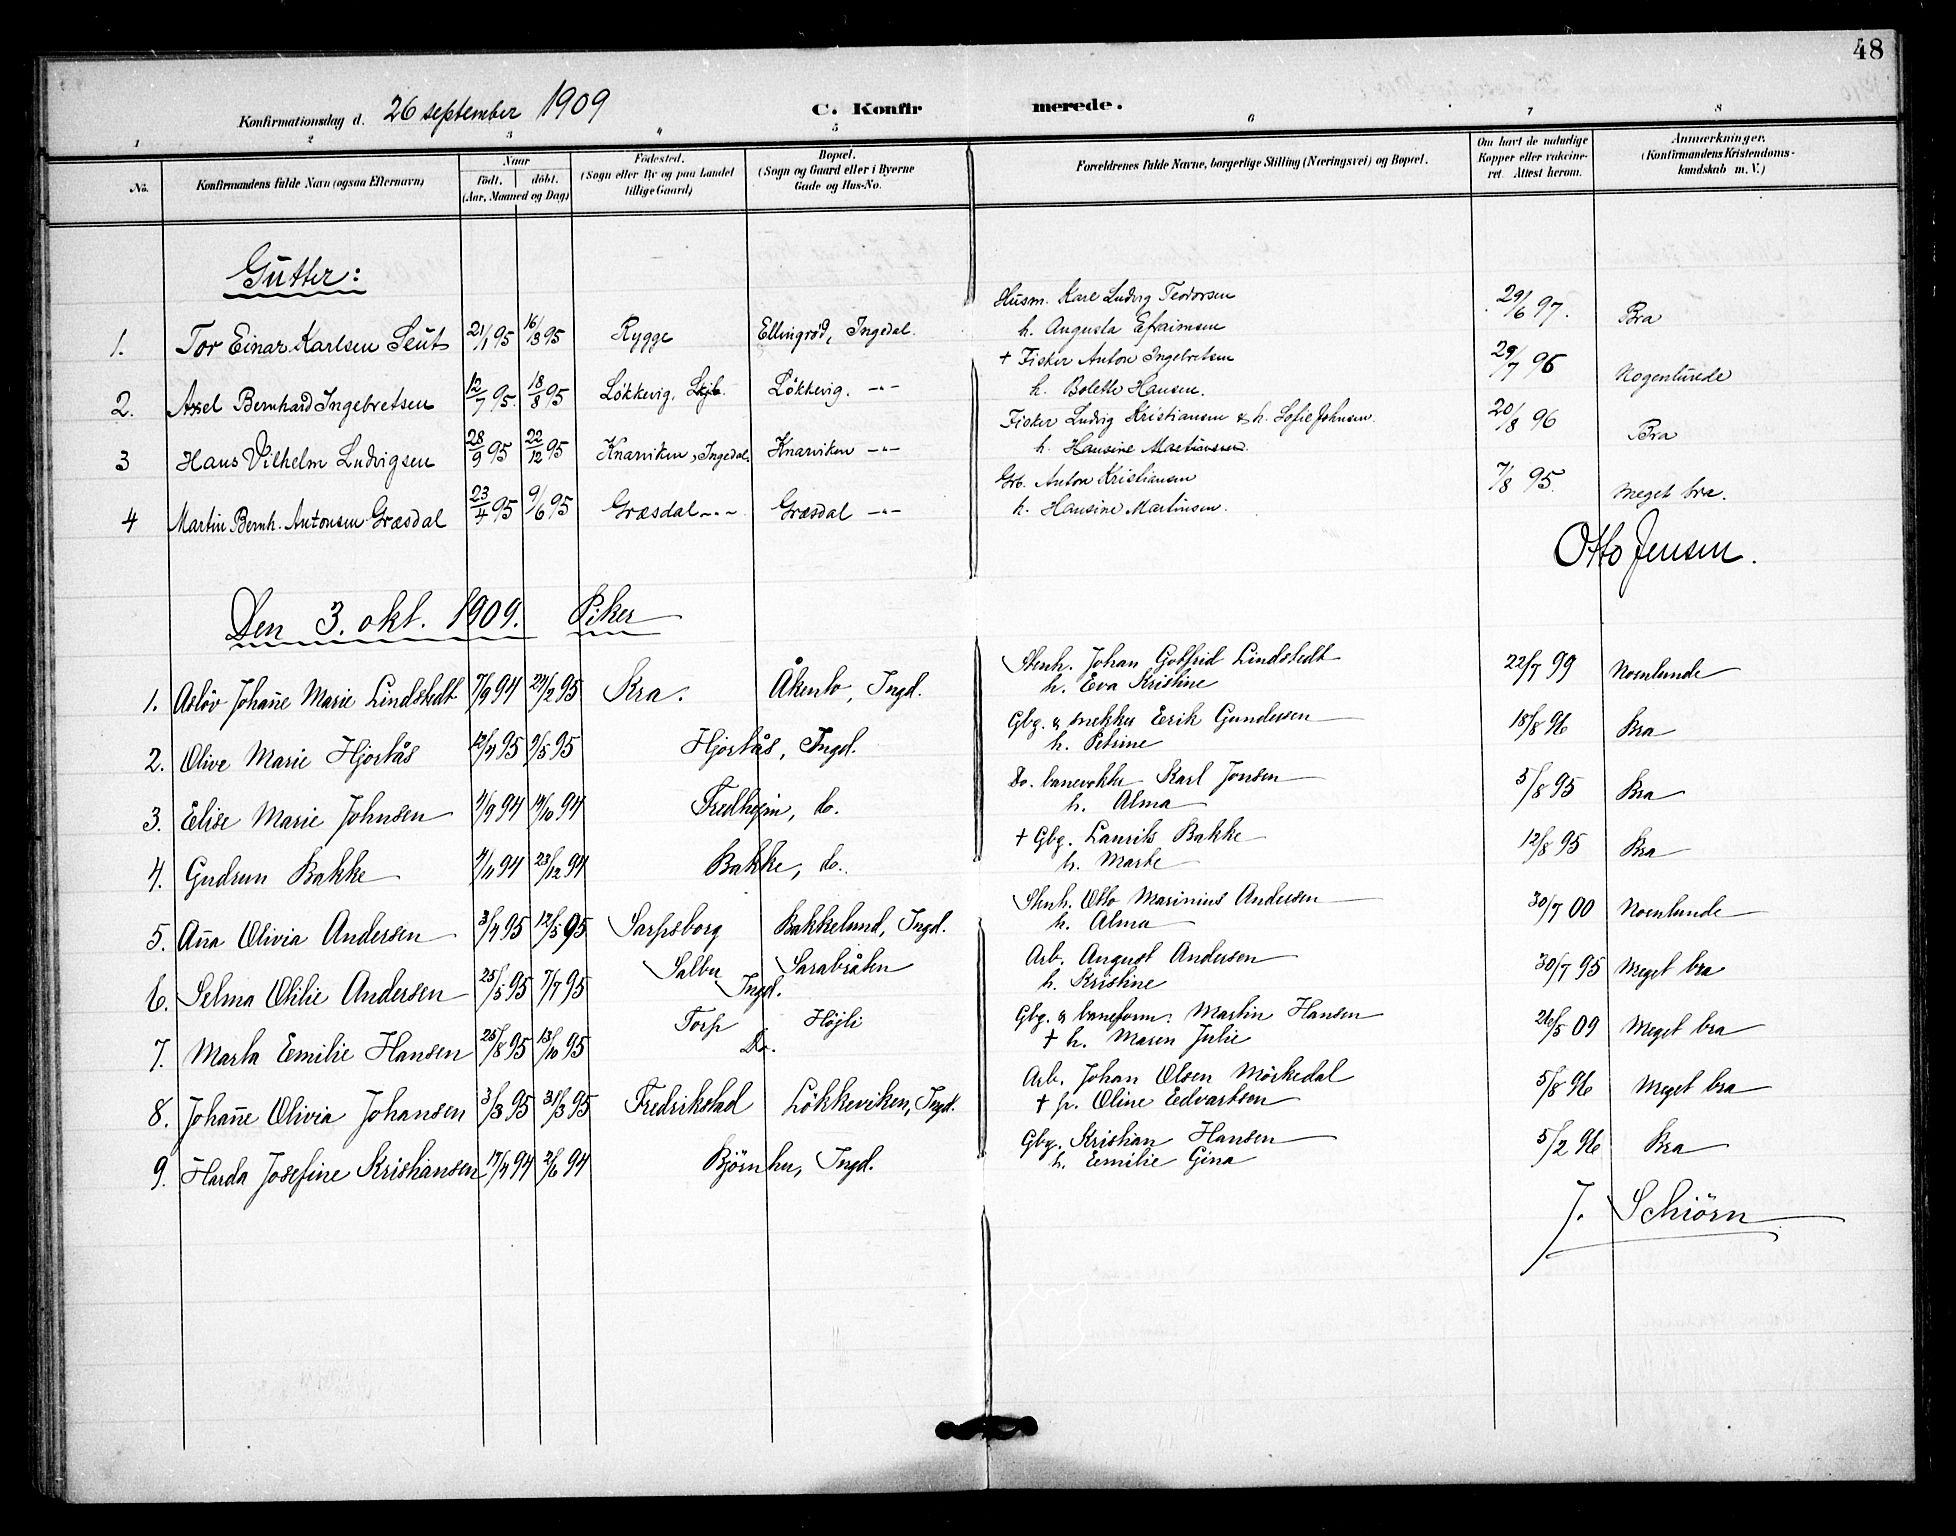 48
Konfirmationsdag d. 26 september 1909 C. Konfirmerede.
1 2 3 4 5 6 7 8
No. Konfirmandens fulde Navn (ogsaa Efternavn) Naar födt. döbt. (Aar, Maaned og Dag) Födested. (Sogn eller By og paa Landet tillige Gaard) Bopæl. (Sogn og Gaard eller i Byerne Gade og Hus-No. Forældrenes fulde Navne, borgerlige Stilling (Næringsvei) og Bopæl. Om havt de naturlige Kopper eller vaccineret. Attest herom. Anmærkninger. (Konfirmandens Kristendomskundskab m. V.)
Gutter:
1. Tor Einar Karlsen Seut 21/1 95 16/3 95 Rygge Ellingrød, Ingedal. Husm. Karl Ludvig Teodorsen 29/6 97. Bra
h. Augusta Efraimsen
2. Axel Bernhard Ingebretsen 12/7 95. 18/8 95 Løkkevig, Skjb. Løkkevig. -"- + Fisker Anton Ingebretsen 29/7 96 Nogenlunde
h. Bolette Hansen.
3 Hans Vilhelm Ludvigsen 28/9 95 22/12 95 Knarviken, Ingedal. Knarviken -"- Fisker Ludvig Kristiansen & h. Sofie Johnsen. 20/8 96 Bra
h. Hansine Martinsen.
4 Martin Bernh. Antonsen Græsdal 23/4 95 9/6 95 Græsdal -"- Græsdal -"- Grb. Anton Kristiansen 7/8 95. Meget bra.
h. Hansine Martinsen.
Otto Jensen.
Den 3. okt. 1909. Piker
1. Aslöv Johañe Marie Lindstedt 7/9 94 24/2 95 Kra. Åkento, Ingd. Stenh. Johan Gotfrid Lindstedt 22/7 99 Noenlunde
h. Eva Kristine
2. Olive Marie Hjortås 12/4 95 9/5 95 Hjortås, Ingd. Gbg. & snekker Erik Gundersen 18/8 96 Bra
h. Petrine
3. Elise Marie Johnsen 4/9 94 14/10 94 Fredheim, do. Do. banevokter Karl Jonsen 5/8 95 Bra
h. Alma
4. Gudrun Bakke 4/11 94 23/12 94 Bakke, do. + Gbg. Laurits Bakke 12/8 95 Bra
h. Marte
5. Aña Olivia Andersen 3/4 95 12/5 95 Sarpsborg Bakkelund, Ingd. Stenh. Otto Marinius Andersen 30/7 00 Noenlunde
h. Alma
6. Selma Otilie Andersen 25/5 95 7/7 95 Salbu Sarabråten Ingd. Arb. August Andersen 30/7 95 Meget bra
h. Kristine
7. Marta Emilie Hansen 25/8 95 13/10 95 Torp Højli Do. Gbg. & baneform. Martin Hansen 26/5 09 Meget bra
+ h. Maren Julie
8. Johañe Olivia Johansen 3/3 95 31/3 95 Fredrikstad Løkkeviken, Ingd. Arb. Johan Olsen Mörkedal 5/8 96 Meget bra
+ p. Oline Edvartsen
9. Harda Josefine Kristiansen 17/4 94 2/6 94 Björnhu, Ingd. Gbg. Kristian Hansen 5/2 96 Bra
h. Emilie Gina
J. Schiörn